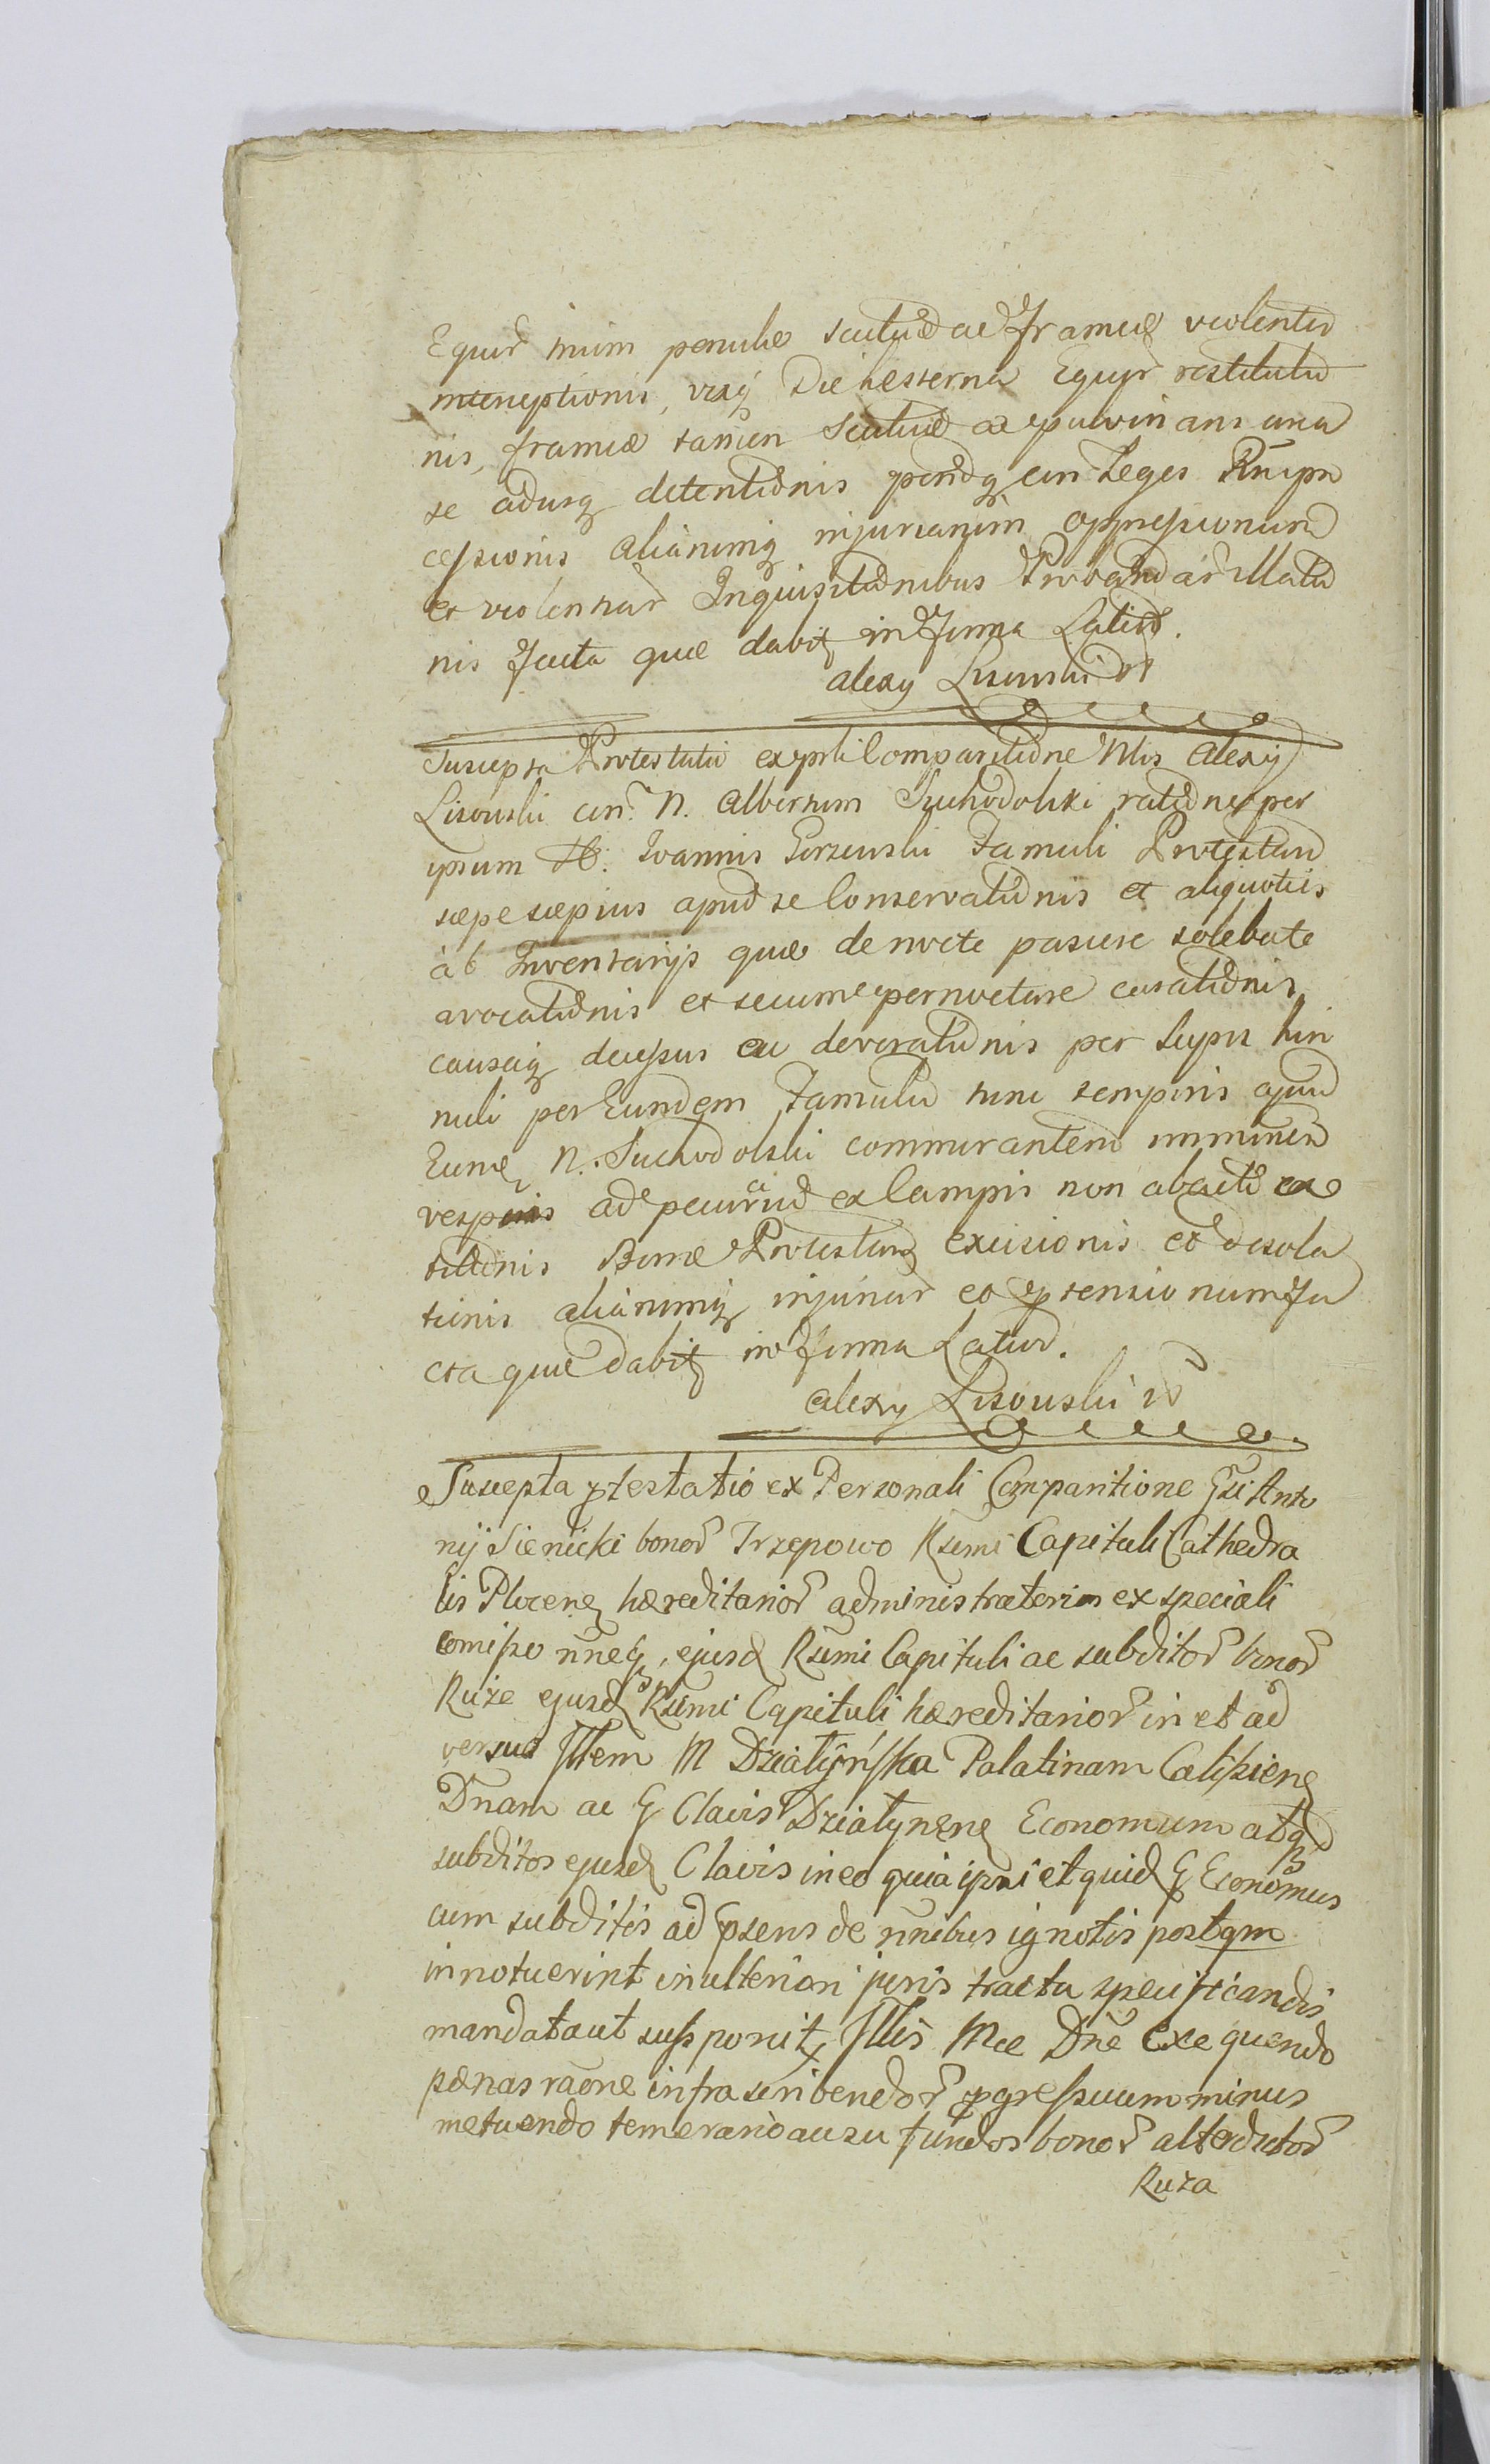 Equor nium penulae scuticae ac Frameae violenter
interceptionis, vixq Die hesterna Equor restitutio
nis, frameae tamen Scuticae ac pulvinaris circa
se adusq detentionis pendq cin Leges Rnipn
cessionis aliarumq injuriarum oppressionum
et violentiar Inquisitionibus Probandar illatio
nis Facta quae dabit in Forma Latiori.
Alexy Lisowski
Suscepta Protestatio ex prli Comparitione Nlis Alexy
Lisowski con N. Albertum Suchodolski ratione per
ipsum H. Ioannis Gorzewski Famuli Protestan
saepe saepius apud se Conservationis et aliquoties
ab Inventarijs quae de nocte pascere solebat
avocationis et secum pernoctare curationis
causaq decessus ac devorationis per Lupos hin
nuli per Eundem Famulum tunc temporis apud
Eume N. Suchodolski commorantem imminen
vesperis ad pecora ex Campis non abacti ca
tionis Borrae Protestan excisionis et desola
tionis aliarumq injuriar et praetensionum Fa
cta quae dabit in Forma Latiori.
Alexy Lisowski
Suscepta ptestatio ex Personali Comparitione Gsi Anto
nij Sienicki bonor Trzepowo Rsmi Capituli Cathedra
lis Plocen haereditarior administratoris ex speciali
comisso nneq ejusd Rsmi Capituli ac subditor bonor
Ruze ejusd Rsmi Capituli haereditarior in et ad
versus Illem M Działyńska Palatinam Calissien
Dnam ac G Clavis Działynsne Economum atq
subditos ejusd Clavis in eo quia ipsi et quid G Economus
cum subditis ad psens de nnibus ignotis postqm
innotuerint in ulteriori juris tractu specificandis
mandat aut supponit Illis Mae Dnae exequendo
paenas raone infrascribendor pgressuum minus
metuendo temerario ausu fundos bonor altedictor
Ruza